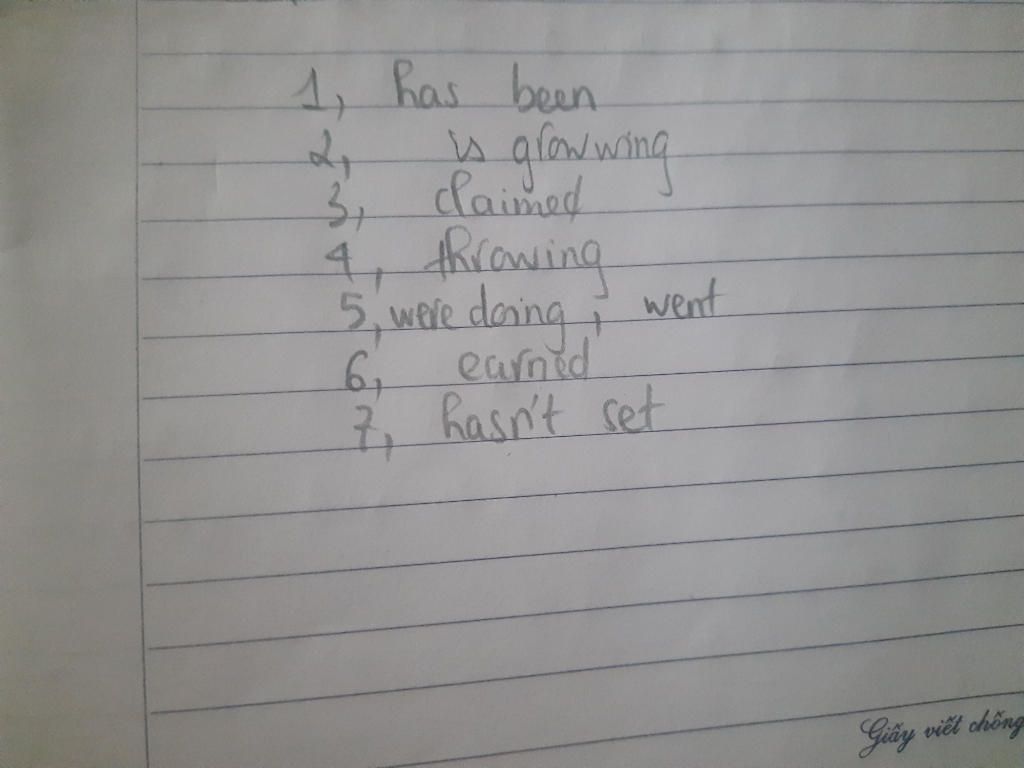 1, has been
2, is growwing
3, claimed
4, throwing
5, were doing, went
6, earned
7, hasn't set
Giấy viết chống